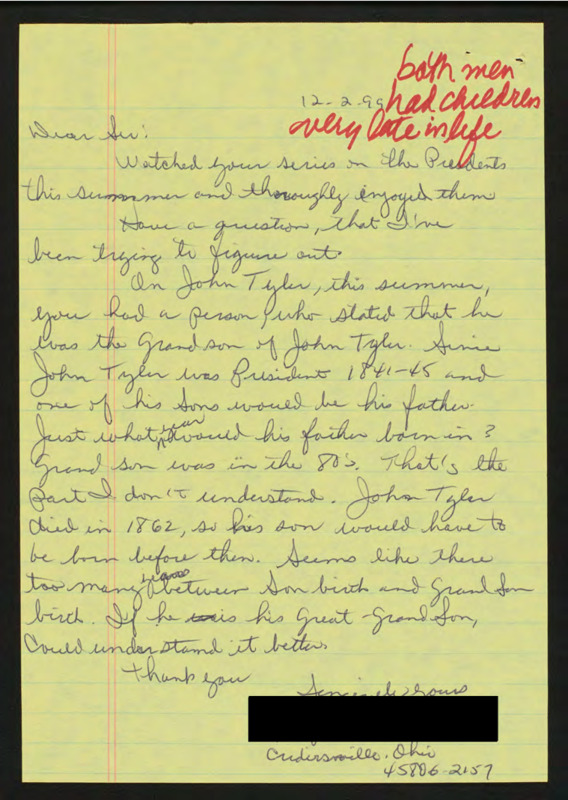 both men
had children
very late in life
12-2-99
Dear Sir:
Watched your series on the Presidents
this summer and thoroughly enjoyed them
Have a question, that I've
been trying to figure out.
On John Tyler, this summer,
you had a person, who stated that he
was the Grandson of John Tyler. Since
John Tyler was President 1841-45 and
one of his Sons would be his father.
Just what year would his father born in?
Grand son was in the 80's. That's the
part I don't understand. John Tyler
died in 1862, so his son would have to
be born before then. Seems like there
too many years between Son birth and Grand Son
birth. If he is his Great-Grand Son,
Could understand it better
Thank you
Sincerely Yours
Cridersville, Ohio
45806-2157